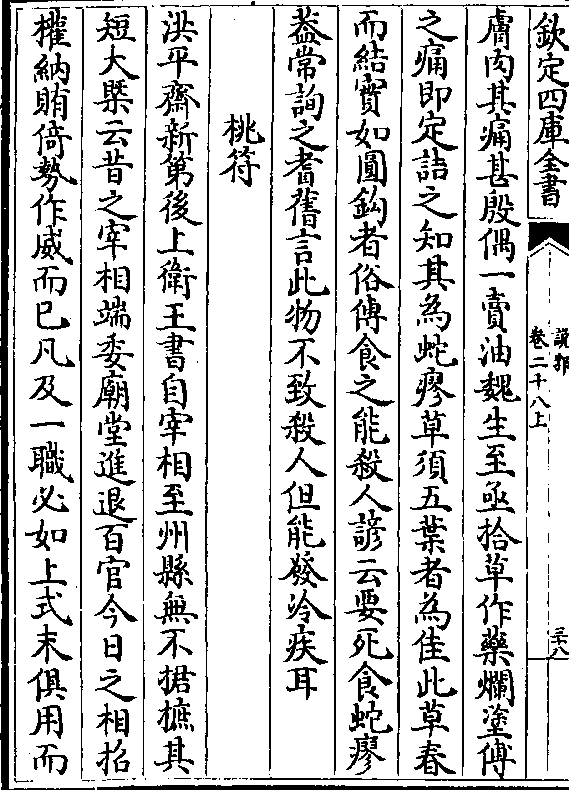 欽定四庫全書
說郛
卷二十八上
三十八
膚肉其痛甚殷偶一賣油魏生至亟拾草作藥爛塗傅
之痛即定詰之知其為蛇瘮草須五葉者為佳此草春
而結實如圓鈎者俗傳食之能殺人諺云要死食蛇瘮
葢常詢之耆舊言此物不致殺人但能發冷疾耳
桃符
洪平齋新第後上衛王書自宰相至州縣無不捃摭其
短大槩云昔之宰相端委廟堂進退百官今日之相招
權納賄倚勢作威而已凡及一職必如上式末俱用而